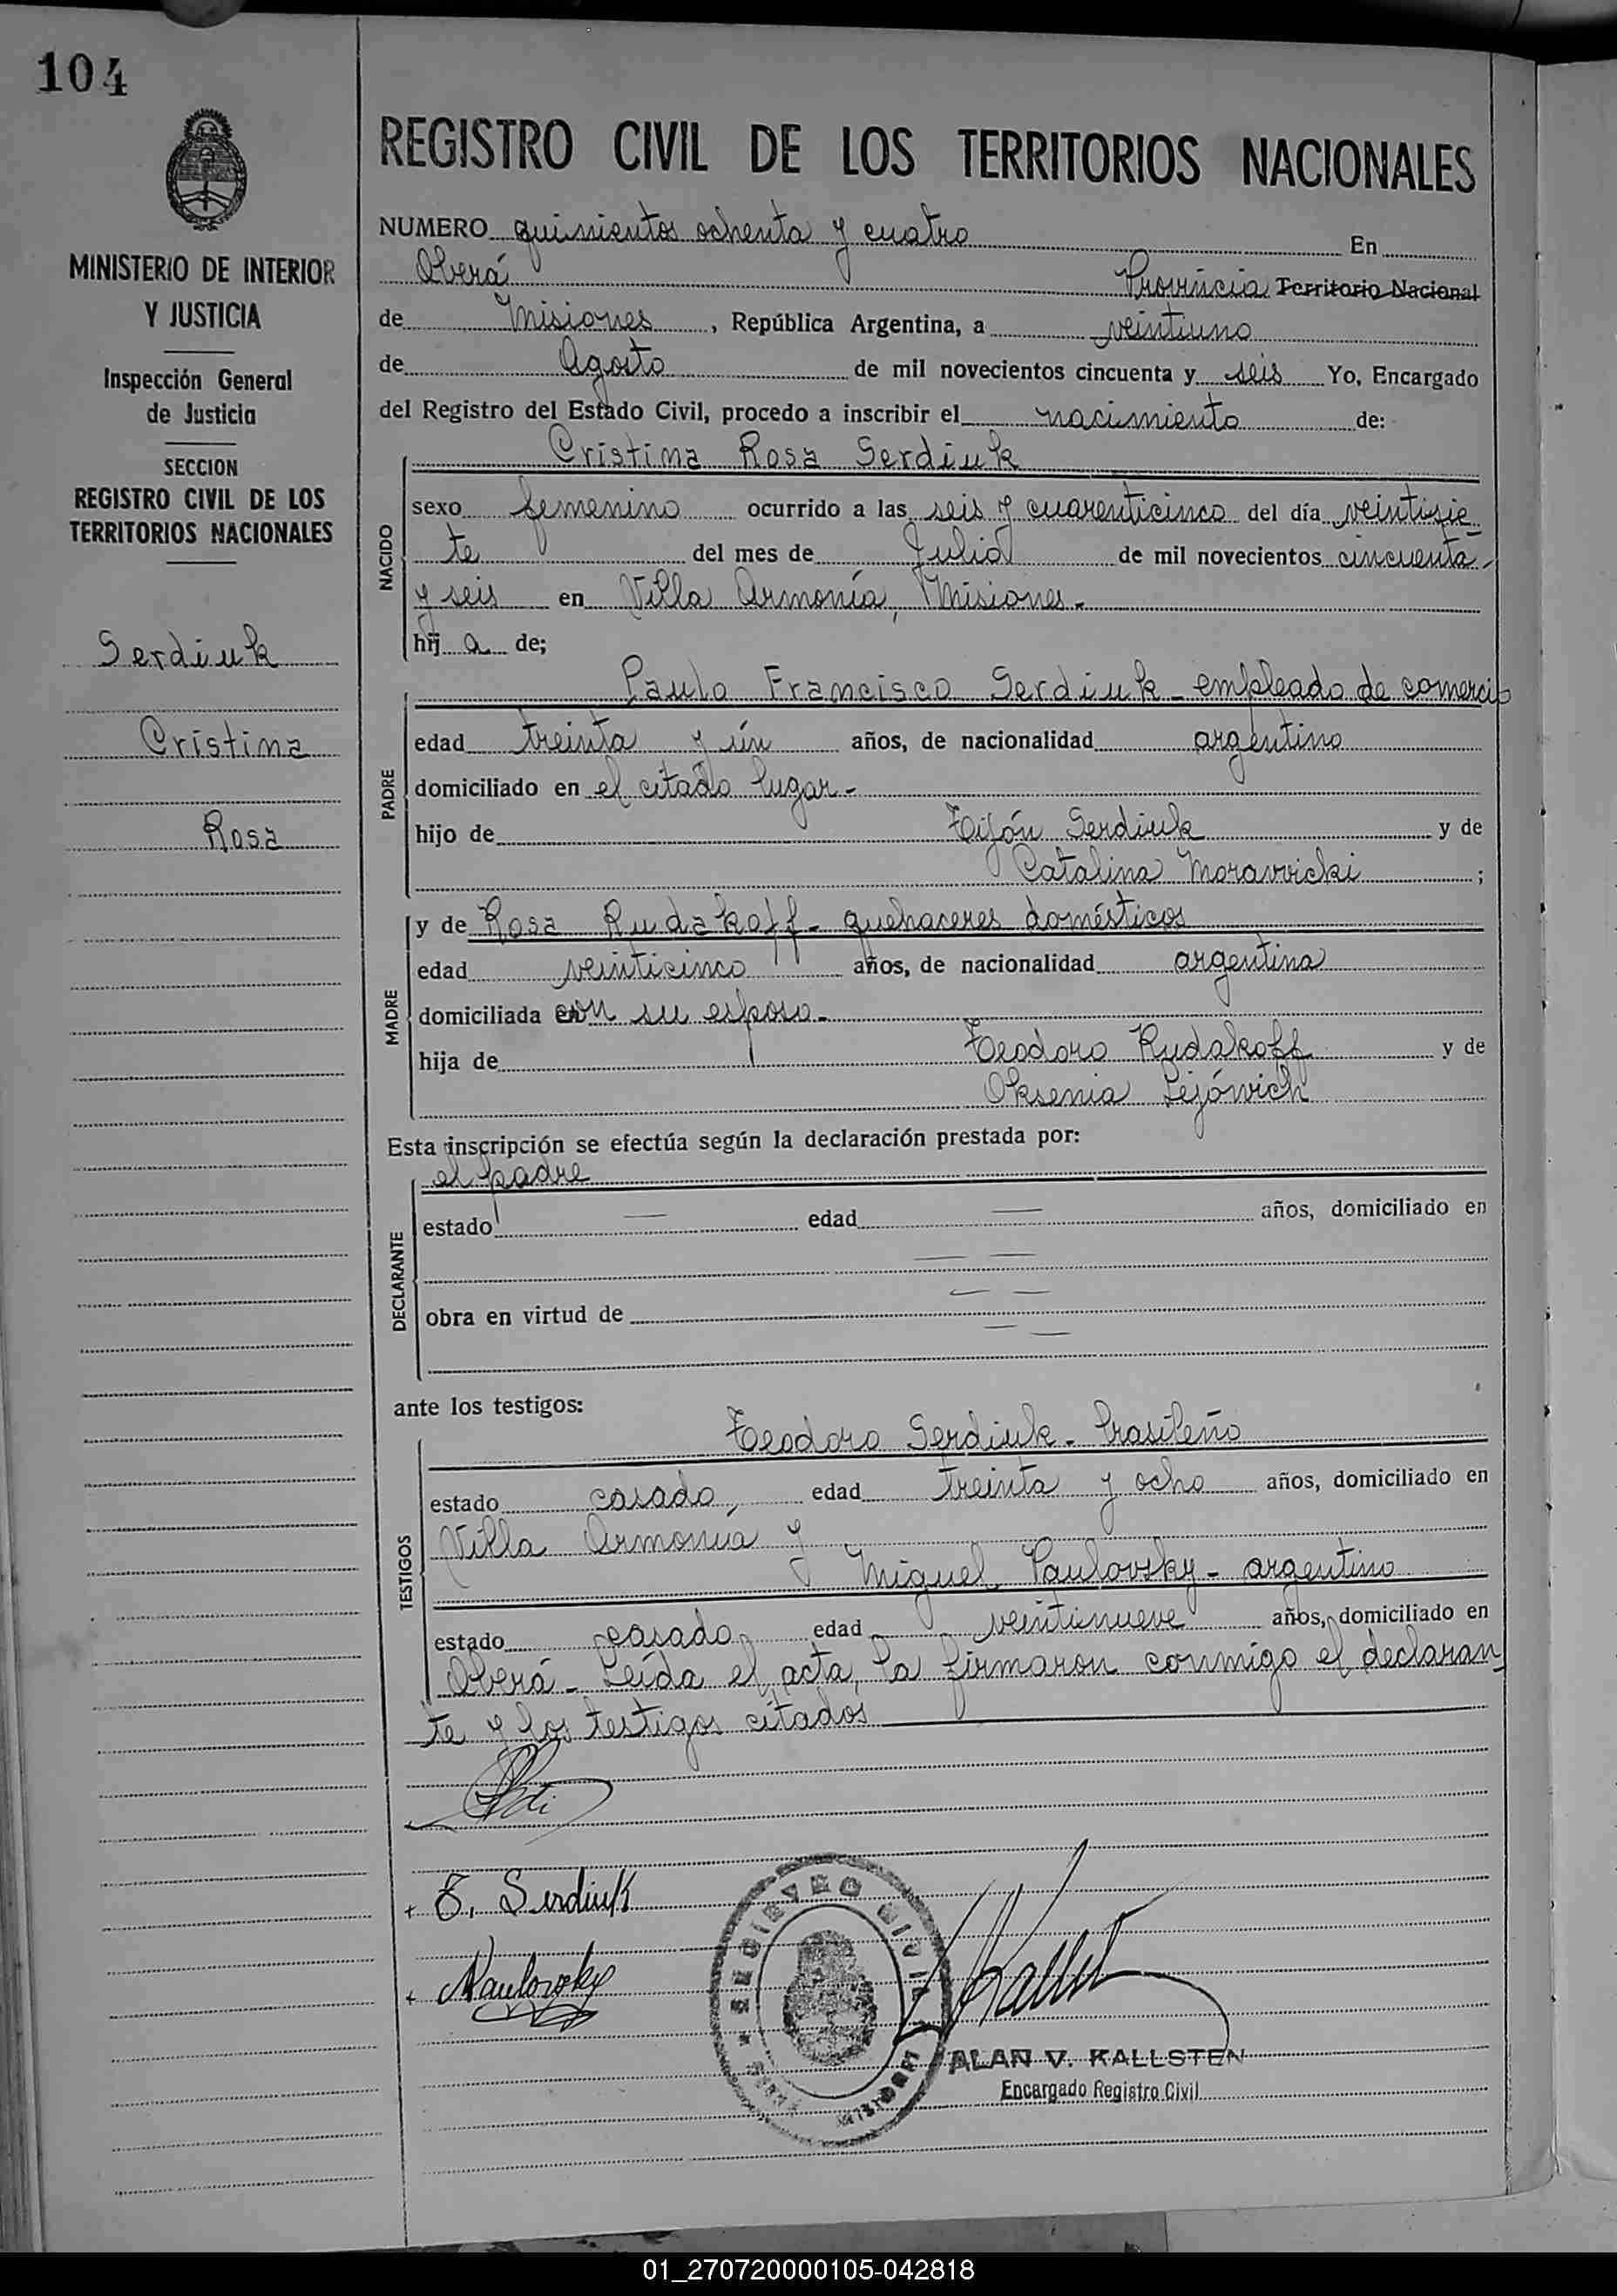 104
MINISTERIO DE INTERIOR
Y JUSTICIA
Inspección General
de Justicia
SECCION
REGISTRO CIVIL DE LOS
TERRITORIOS NACIONALES
Serdiuk
Cristina
Rosa
REGISTRO CIVIL DE LOS TERRITORIOS NACIONALES
NUMERO quinientos ochenta y cuatro En
Oberá Provincia Territorio Nacional
de Misiones, República Argentina, a veintiuno
de Agosto de mil novecientos cincuenta y seis Yo, Encargado
del Registro del Estado Civil, procedo a inscribir el nacimiento de:
Cristina Rosa Serdiuk
NACIDO
sexo femenino ocurrido a las seis y cuarenticinco del día veintisie-
te del mes de Julio de mil novecientos cincuenta
y seis en Villa Armonía, Misiones.-
hij a de;
Paulo Francisco Serdiuk - empleado de comercio
PADRE
edad treinta y ún años, de nacionalidad argentino
domiciliado en el citado lugar -
hijo de Tifón Serdiuk y de
Catalina Moravvicki ;
y de Rosa Rudakoff - quehaceres domésticos
MADRE
edad veinticinco años, de nacionalidad argentina
domiciliada con su esposo -
hija de Teodoro Rudakoff y de
Oksenia Lejóvich
Esta inscripción se efectúa según la declaración prestada por:
el padre
DECLARANTE
estado — edad — años, domiciliado en
— —
obra en virtud de — —
— —
ante los testigos:
Teodoro Serdiuk - brasileño
TESTIGOS
estado casado, edad treinta y ocho años, domiciliado en
Villa Armonía y
Miguel Paulovsky - argentino
estado casado, edad veintinueve años, domiciliado en
Oberá - Leída el acta, la firmaron conmigo el declaran-
te y los testigos citados
T. Serdiuk
MPaulovsky
REGISTRO CIVIL
MISIONES
ALAN V. KALLSTEN
Encargado Registro Civil
01_270720000105-042818